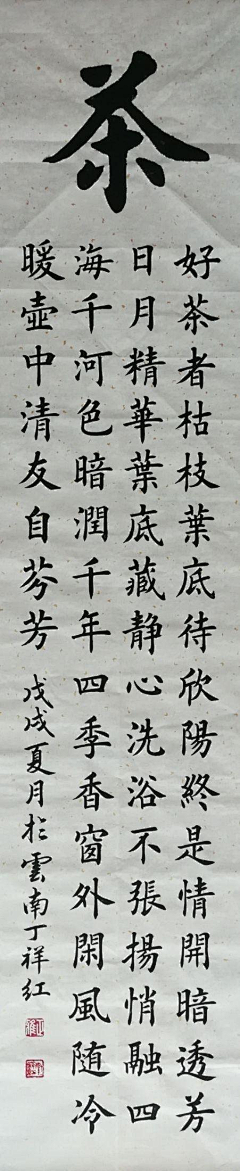 茶
好茶者枯枝葉底待欣陽終是情開暗透芳
日月精華葉底藏静心洗浴不張揚悄融四
海千河色暗潤千年四季香窗外閑風随冷
暖壺中清友自芬芳
戊戌夏月於雲南丁祥红